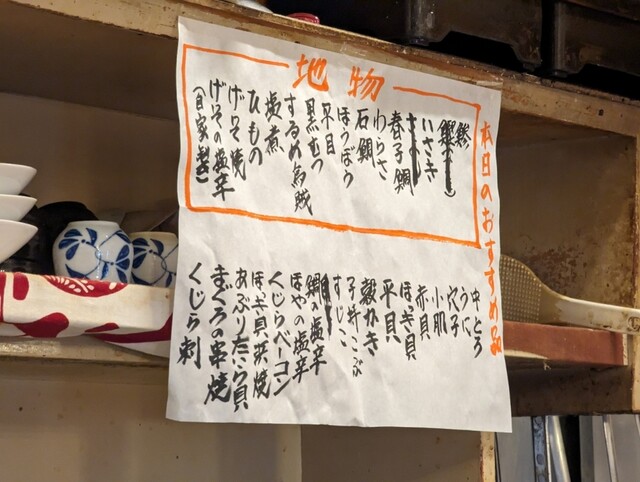 本日のおすすめ品
地物
鯵
いさき
春子鯛
わらさ
石鯛
ほうぼう
平目
黒むつ
するめ烏賊
塩煮
ひもの
げそ焼
げその塩辛
(自家製)
中とろ
うに
穴子
小肌
赤貝
ほっき貝
平貝
殻かき
子持こぶ
すじこ
鯛の塩辛
ほやの塩辛
くじらベーコン
ほっき貝浜焼
あぶりたら貝
まぐろの串焼
くじら刺